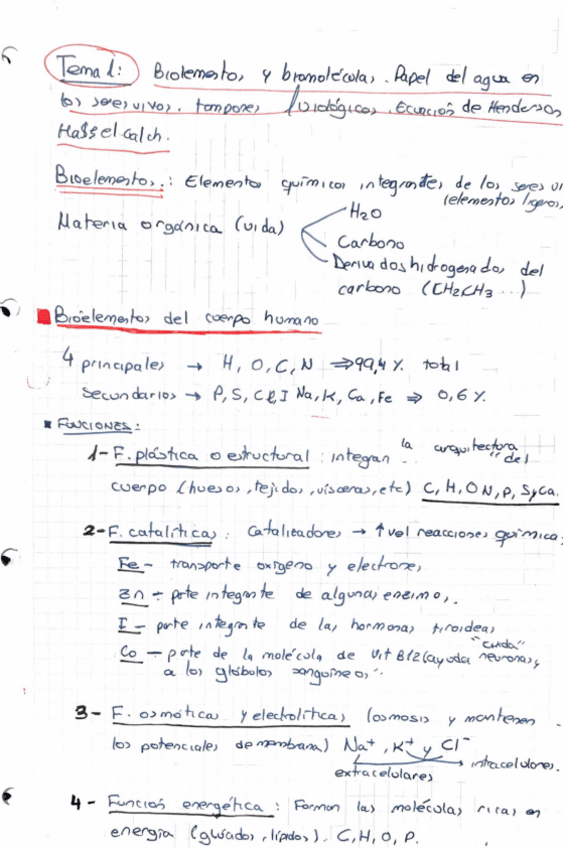 Tema 1: Biolementos y biomoléculas. Papel del agua en
los seres vivos. tampones fisiológicos. Ecuación de Henderson
Hasselcalch.
Bioelementos.: Elementos químicos integrantes de los seres vi
(elementos ligeros)
Materia orgánica (vida)
H2O
Carbono
Derivados hidrogenados del
carbono (CH2CH3 ...)
Bioelementos del cuerpo humano
4 principales → H, O, C, N ⇒ 99,4 %. total
Secundarios → P, S, Cl, I Na, K, Ca, Fe ⇒ 0,6 %.
FUNCIONES:
1- F. plástica o estructural: integran la arquitectora del
cuerpo (huesos, tejidos, vísceras, etc) C, H, O N, P, S y Ca.
2- F. catalíticas: Catalizadores → ↑vel reacciones química
Fe - transporte oxígeno y electrones
Zn - parte integrante de algunas enzimas.
I - parte integrante de las hormonas tiroideas
Co - parte de la molécula de Vit B12 (ayuda "cuida" neuronas y
a los glóbulos sanguíneos".
3- F. osmóticas y electrolíticas (osmosis y mantienen
los potenciales de membrana) Na+, K+ y Cl-
extracelulares intracelulares.
4- Función energética: Forman las moléculas ricas en
energía (glúcidos, lípidos). C, H, O, P.